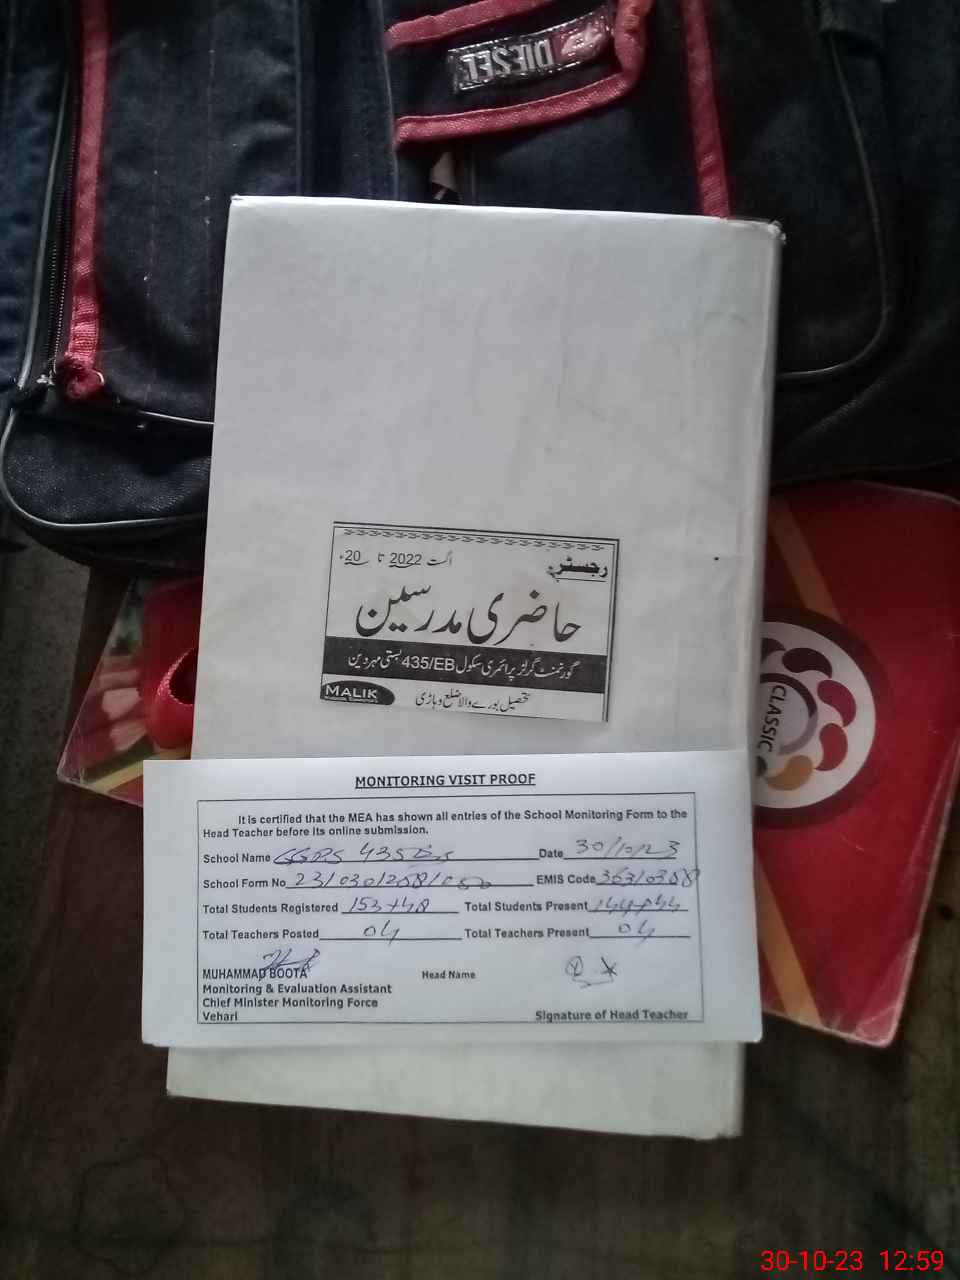 DIESEL
رجسٹر
اگست 2022 تا 20ء
حاضری مدرسین
گورنمنٹ گرلز پرائمری سکول 435/EB بستی مہر دین
تحصیل بورے والا ضلع وہاڑی
MALIK
CLASSIC
MONITORING VISIT PROOF
It is certified that the MEA has shown all entries of the School Monitoring Form to the
Head Teacher before its online submission.
School Name GGPS 435 Date 30/10/23
School Form No EMIS Code
Total Students Registered 153+48 Total Students Present 144+44
Total Teachers Posted 04 Total Teachers Present 04
MUHAMMAD BOOTA Head Name
Monitoring & Evaluation Assistant
Chief Minister Monitoring Force
Vehari Signature of Head Teacher
30-10-23 12:59